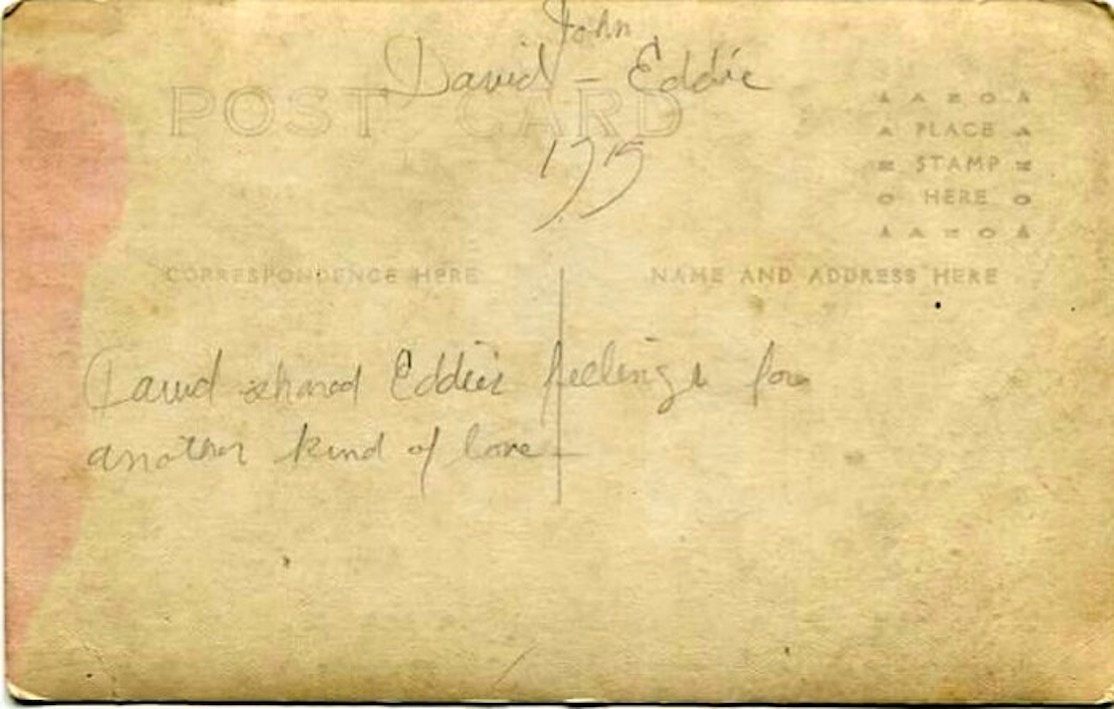 John
David - Eddie
POST CARD
1915
▲ A Z O ▲
A PLACE A
Z STAMP Z
O HERE O
▲ A Z O ▲
CORRESPONDENCE HERE
NAME AND ADDRESS HERE
David shared Eddie's feelings for
another kind of love